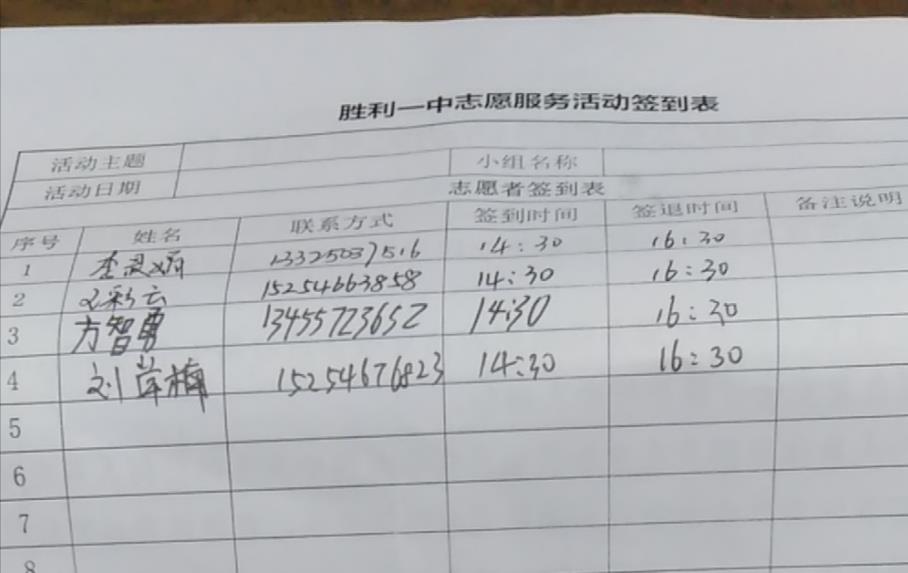 胜利一中志愿服务活动签到表
活动主题 小组名称
活动日期 志愿者签到表
序号 姓名 联系方式 签到时间 签退时间 备注说明
1 13325037516 14:30 16:30
2 彩云 15254663858 14:30 16:30
3 方智勇 13455723652 14:30 16:30
4 刘 梅 15254676823 14:30 16:30
5
6
7
8